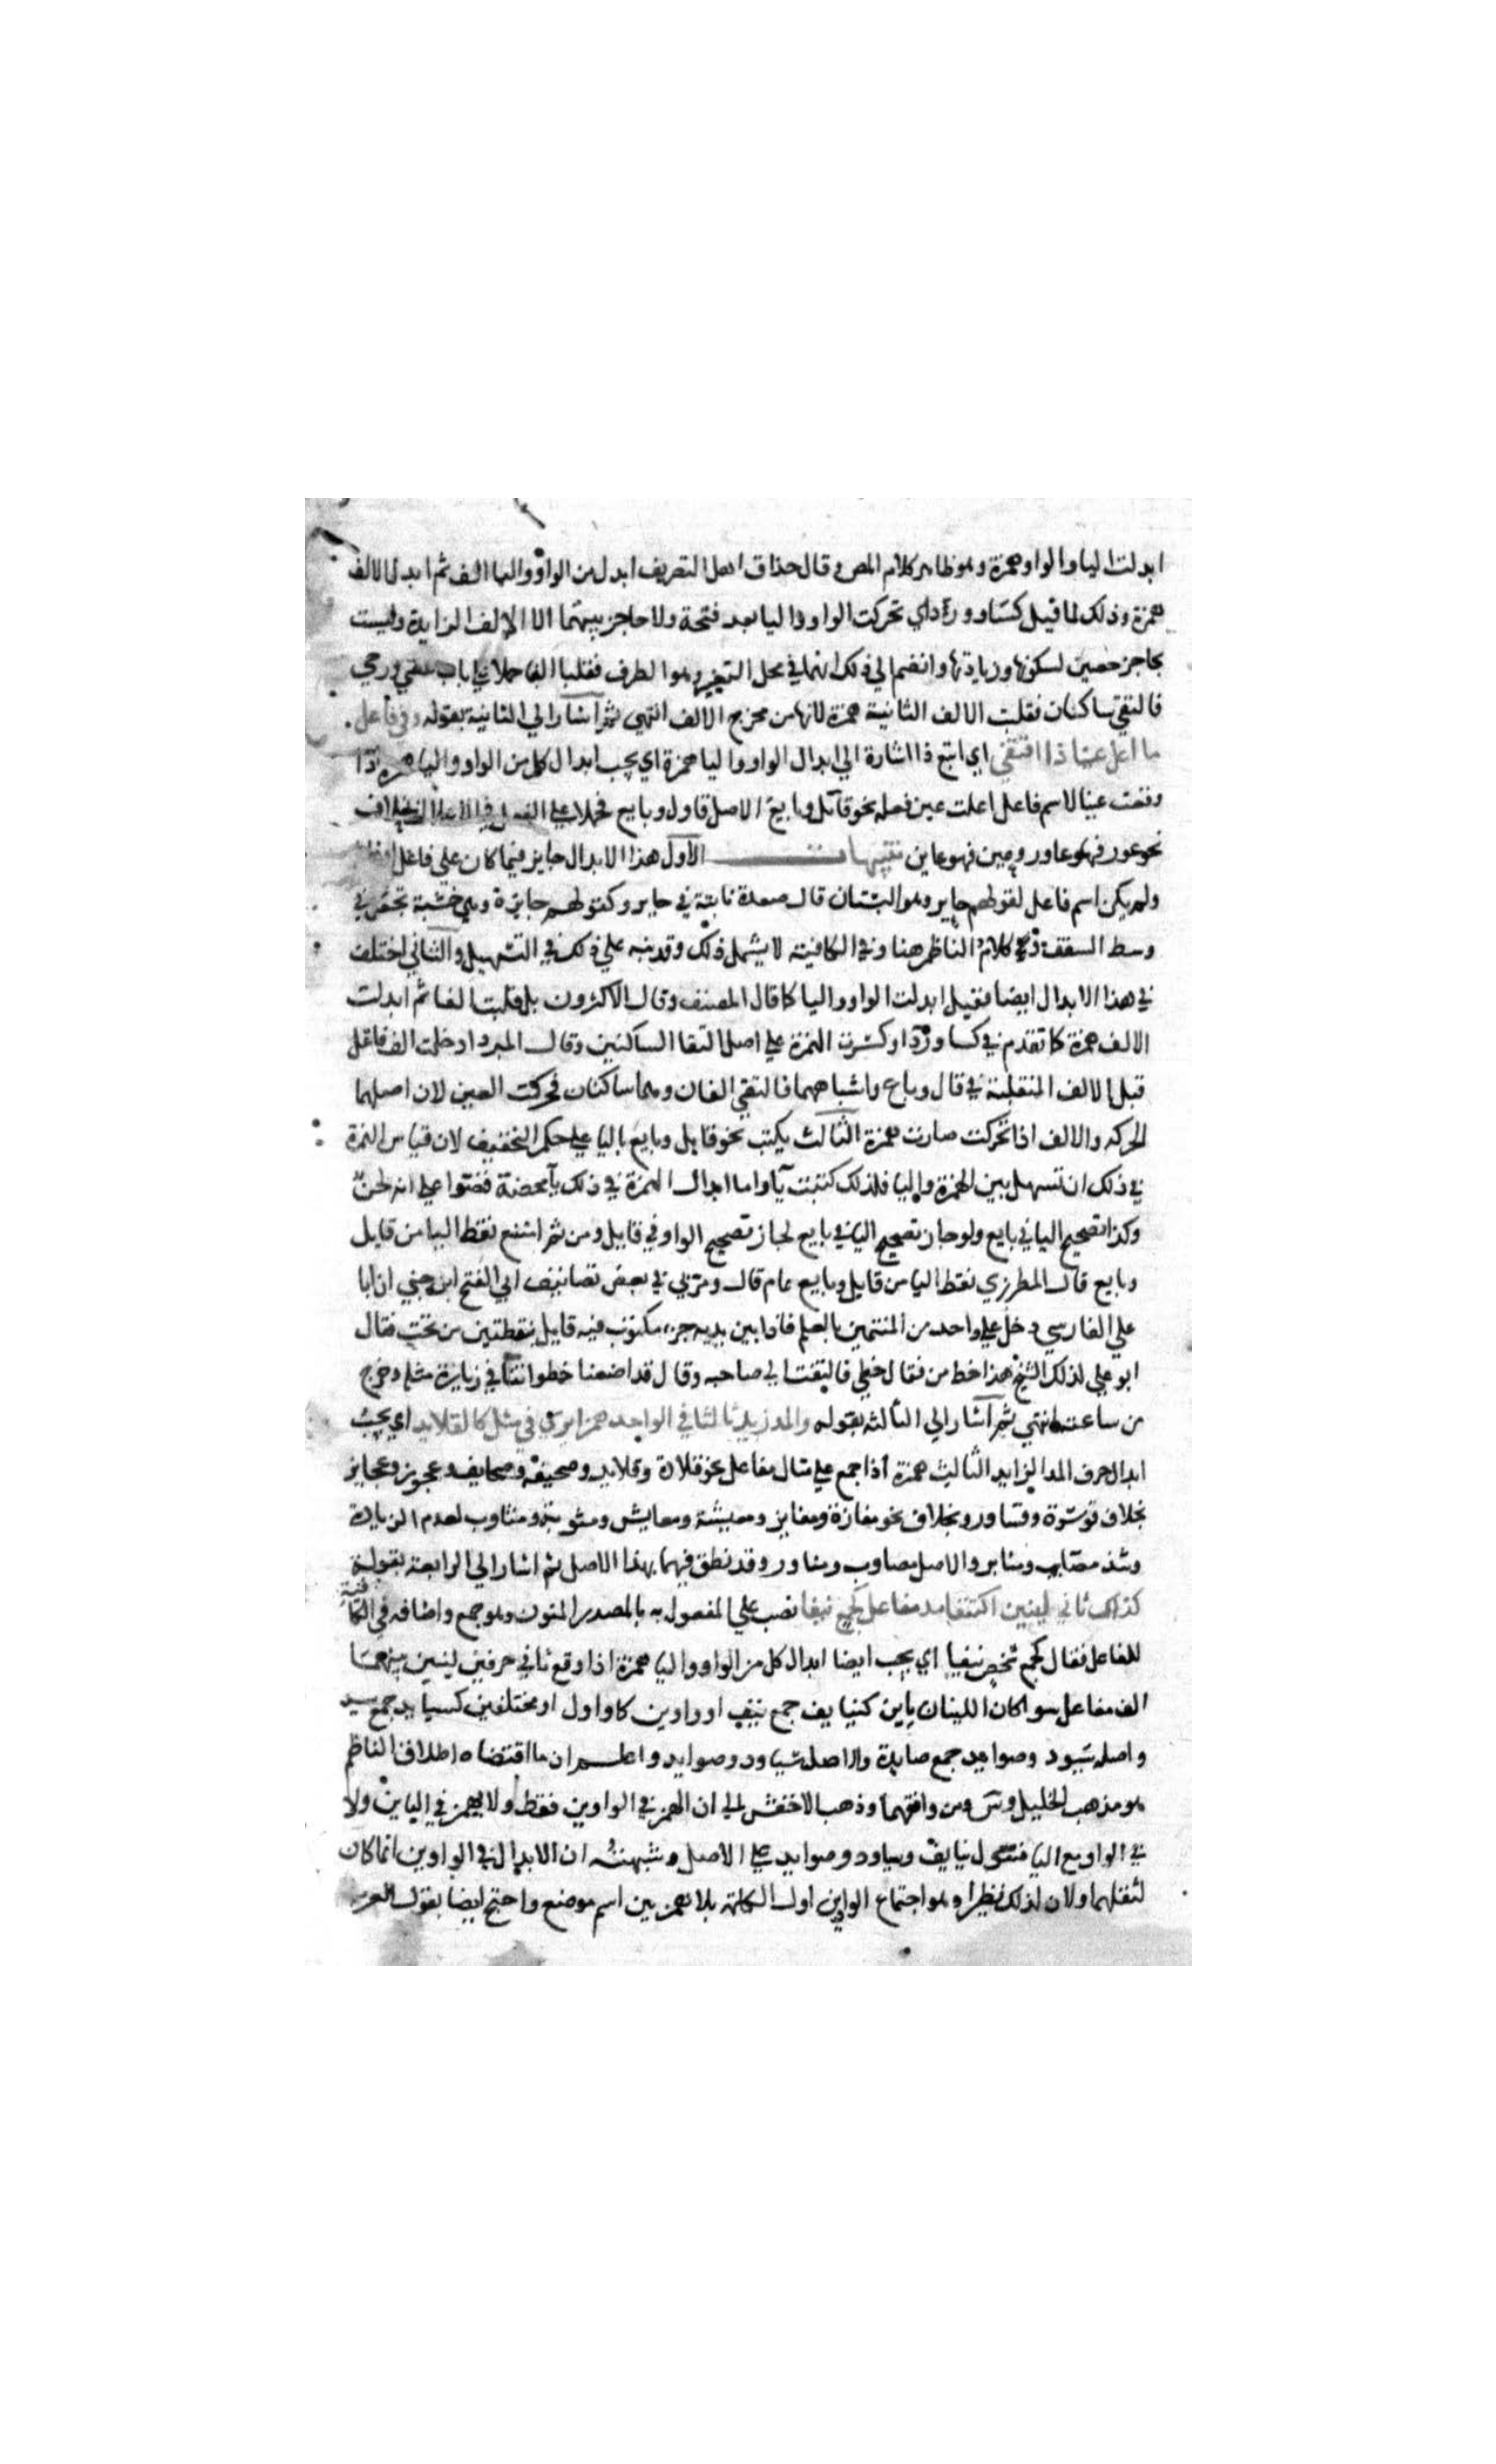 ابدلت اليا والواو همزة وهو ظاهر كلام المص وقال حذاق اهل التصريف ابدل من الواو واليا الف ثم ابدلت الالف
همزة وذلك لما قيل كساو ورداي تحركت الواو واليا بعد فتحة ولا حاجز بينهما الا الالف الزايدة وليست
بحاجز حصين لسكونها وزيادتها وانضم الي ذلك انهما في محل التغيير وهو الطرف فقلبا الفا حملا علي باب عصي ورحي
فالتقي ساكنان فقلبت الالف الثانية همزة لانها من مخرج الالف انتهي ثم اشار الي الثانية بقوله وفي فاعل
ما اعل عينا ذا اقتفي اي اتبع ذا اشارة الي ابدال الواو واليا همزة اي يجب ابدال كل من الواو واليا همزة اذا
وقعت عينا لاسم فاعل اعلت عين فعله نحو قائل وبايع الاصل قاول وبايع فحملا علي الفعل في الاعلال بخلاف
نحو عور فهو عاور وعين فهو عاين تنبيهات الاول هذا الابدال جايز فيما كان علي فاعل
ولم يكن اسم فاعل لقولهم جاير وهو البستان قال صعدة نابتة في حاير وكقولهم جايزة وهي خشبة تجعل في
وسط السقف وكلام الناظم هنا وفي الكافية لا يشمل ذلك وقد نبه علي ذلك في التسهيل والثاني اختلف
في هذا الابدال ايضا فقيل ابدلت الواو واليا كما قال المصنف وقال الاكثرون بل قلبتا الفا ثم ابدلت
الالف همزة كما تقدم في كسا وردا وكسرت الهمزة علي اصل التقا الساكنين وقال المبرد ادخلت الف فاعل
قبل الالف المنقلبة في قال وباع واشباههما فالتقي الفان وهما ساكنان فحركت العين لان اصلها
الحركة والالف اذا تحركت صارت همزة الثالث يكتب نحو قايل وبايع باليا علي حكم التخفيف لان قياس الهمزة
في ذلك ان تسهل بين الهمزة واليا فلذلك كتبت يآ واما ابدال الهمزة في ذلك يآ محضة فنصوا علي انه لحن
وكذا تصحيح اليا في بايع ولو جاز تصحيح اليا في بايع لجاز تصحيح الواو في قايل ومن ثم امتنع نقط اليا من قايل
وبايع قال المطرزي نقط اليا من قايل وبايع عام قال ومر بي في بعض تصانيف ابي الفتح ابن جني ان ابا
علي الفارسي دخل علي واحد من المتسمين بالعلم فاذا بين يديه جزء مكتوب فيه قايل بنقطتين من تحت فقال
ابو علي لذلك الشيخ هذا خط من فقال خطي فالتفت الي صاحبه وقال قد اضعنا خطواتنا في زيارة مثله وخرج
من ساعته انتهي ثم اشار الي الثالثة بقوله والمد زيد ثالثا في الواحد همزا يري في مثل كالقلايد اي يجب
ابدال حرف المد الزايد الثالث همزة اذا جمع علي مثال مفاعل نحو قلادة وقلايد وصحيفة وصحايف وعجوز وعجايز
بخلاف قسورة وقساور وبخلاف نحو مفازة ومفايز ومعيشة ومعايش ومثوبة ومثاوب لعدم الزيادة
وشذ مصايب ومناير والاصل مصاوب ومناور وقد نطق فيهما بهذا الاصل ثم اشار الي الرابعة بقوله
كذاك ثاني لينين اكتنفا مد مفاعل كجمع نيفا نصب علي المفعول به بالمصدر المنون وهو جمع واضافه في الكافية
للفاعل فقال كجمع شخص نيفا اي يجب ايضا ابدال كل من الواو واليا همزة اذا وقع ثاني حرفين لينين بينهما
الف مفاعل سوا كان اللينان ياين كنيايف جمع نيف او واوين كاوايل او مختلفين كسيايد جمع سيد
واصله سيود وصوايد جمع صايدة والاصل سياود وصوايد واعلم ان ما اقتضاه اطلاق الناظم
هو مذهب الخليل وس ومن وافقهما وذهب الاخفش الي ان الهمز في الواوين فقط ولا يهمز في الياين ولا
في الواو مع اليا فتقول نيايف وسياود وصوايد علي الاصل وشبهته ان الابدال في الواوين انما كان
لثقلهما ولان لذلك نظيرا وهو اجتماع الواوين اول الكلمة بلا همز بين اسم موضع واحتج ايضا بقول العرب